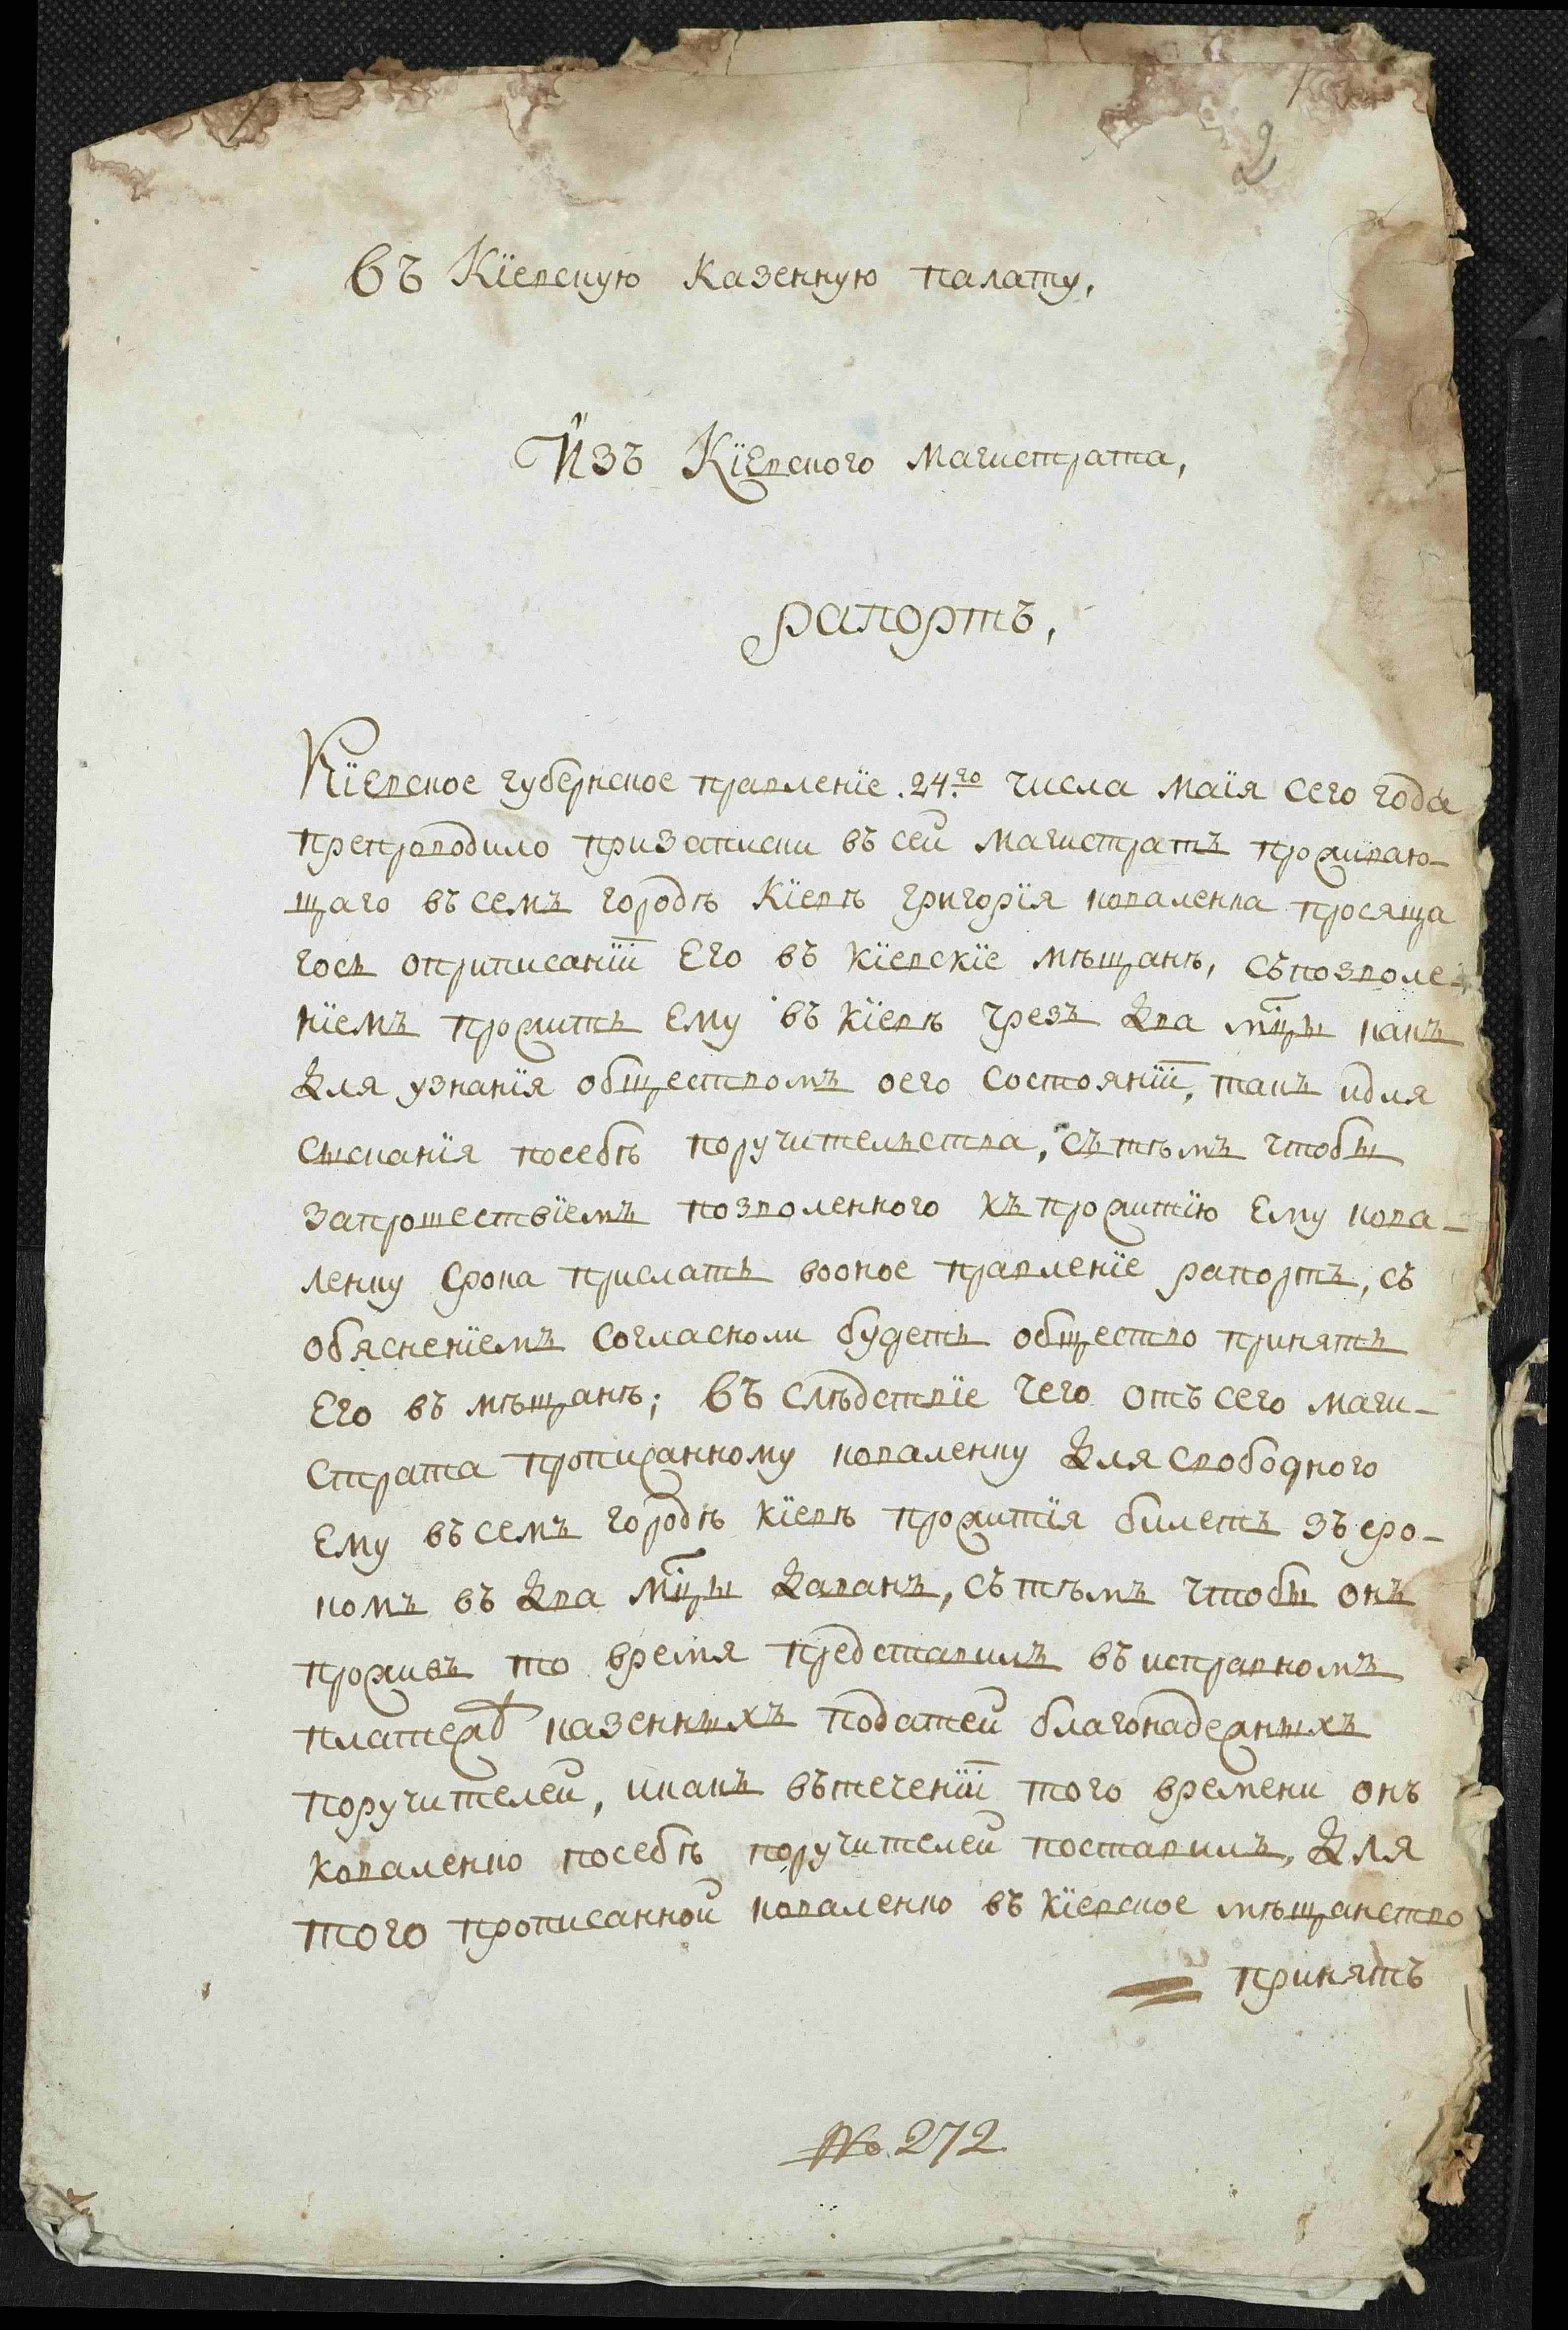 2
Въ Кїевскую казенную палату,
Изъ Кїевского магистрата,
рапортъ,
Кїевское губернское правленїе 24.го числа маїя сего года
препроводило призаписки въ сей магистратъ проживаю-
щаго въ семъ городѣ Кїевѣ григорїя коваленка просяща
гось оприписанїи Его въ кїевскїе мѣщанѣ, съ позволе-
нїемъ прожить Ему въ кїевѣ чрезъ два мцы какъ
для узнанїя обществомъ оего состоянїи, такъ идля
сысканїя посебѣ поручительства, сътѣмъ чтобы
запрошествїемъ позволенного къ прожитїю Ему кова-
ленку срока прислать вооное правленїе рапортъ, съ
обясненїемъ согласноли будетъ общество принять
Его въ мѣщанѣ; въ слѣдствїе чего отъ сего маги-
страта прописанному коваленку для свободного
Ему въ семъ городѣ кїевѣ прожитїя билетъ зъ сро-
комъ въ два мцы даванъ, съ тѣмъ чтобы онъ
проживъ то время представилъ въ исправномъ
платежѣ казенныхъ податей благонадежныхъ
поручителей, икакъ въ теченїи того времени онъ
коваленко посебѣ поручителей поставилъ, для
того прописанной коваленко въ кїевское мѣщанство
принятъ
№ 272